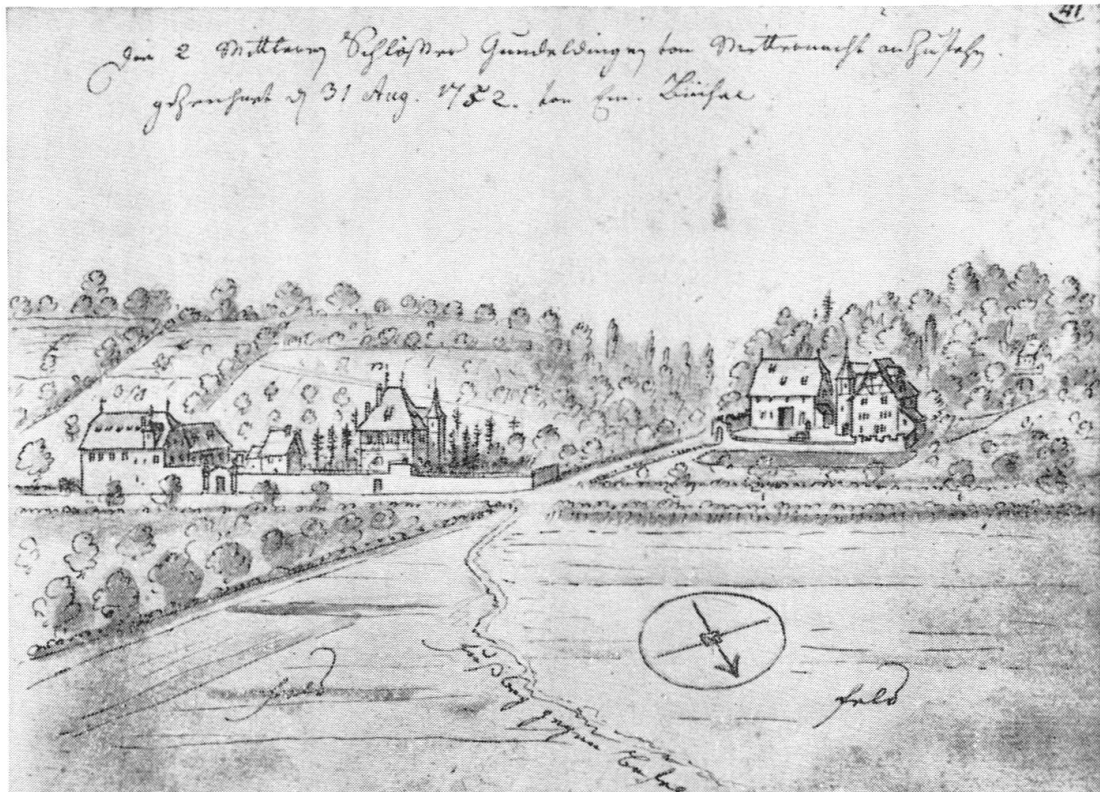 41
Die 2 Mittlern Schlösser Gundeldingen von Mitternacht anzusehn.
gezeichnet d 31 Aug. 1752. von Em. Büchel
feld
feld
fußweg gegen Basel